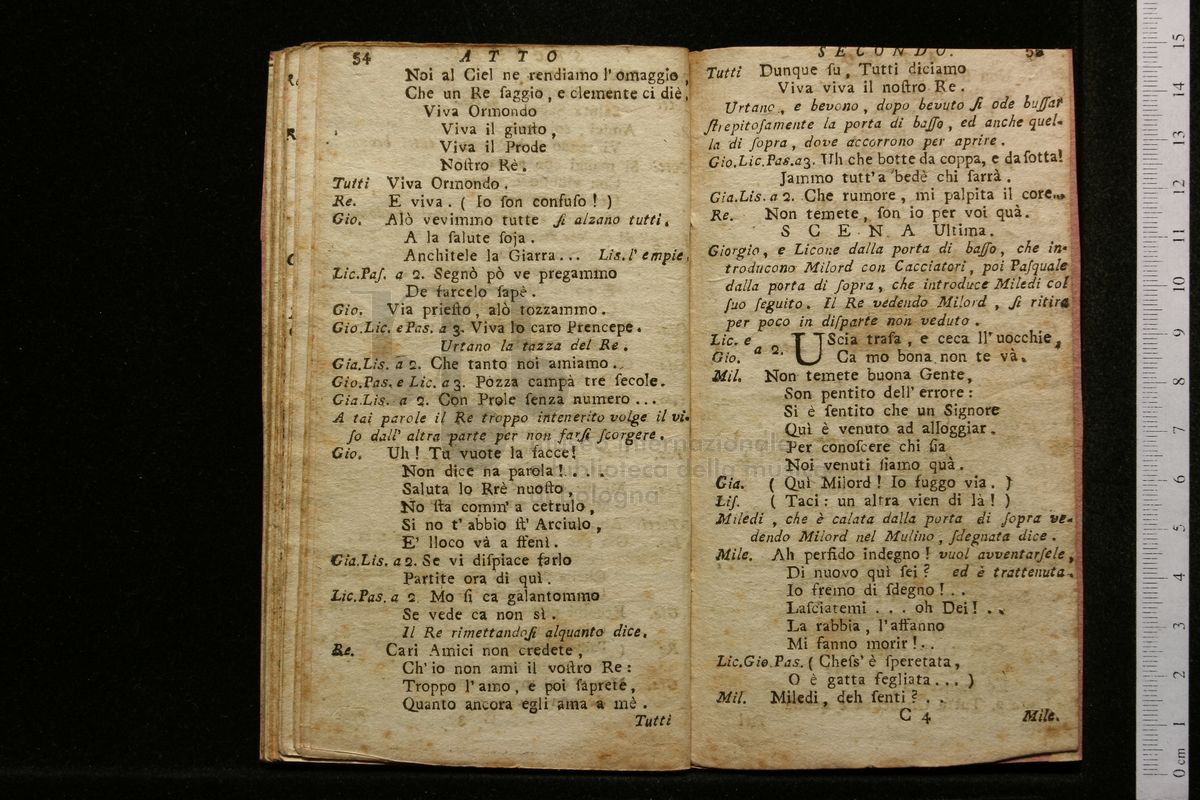 54 ATTO
Noi al Ciel ne rendiamo l'omaggio,
Che un Re ſaggio, e clemente ci diè,
Viva Ormondo
Viva il giuſto,
Viva il Prode
Noſtro Rè.
Tutti Viva Ormondo.
Re. E viva. ( Io ſon confuſo! )
Gio. Alò vevimmo tutte ſi alzano tutti.
A la ſalute ſoja.
Anchitele la Giarra... Liſ. l'empie.
Lic.Paſ. a 2. Segnò pò ve pregammo
De farcelo ſapè.
Gio. Via prieſto, alò tozzammo.
Gio.Lic. e Pas. a 3. Viva lo caro Prencepe.
Urtano la tazza del Re.
Gia.Lis. a 2. Che tanto noi amiamo..
Gio.Pas. e Lic. a 3. Pozza campà tre ſecole.
Gia.Lis. a 2. Con Prole ſenza numero...
A tai parole il Re troppo intenerito volge il vi-
ſo dall' altra parte per non farſi ſcorgere.
Gio. Uh! Tu vuote la facce!
Non dice na parola!...
Saluta lo Rrè nuoſto,
No ſta comm' a cetrulo,
Si no t' abbio ſt' Arciulo,
E' lloco và a ffenì.
Gia.Lis. a 2. Se vi diſpiace farlo
Partite ora di quì.
Lic.Pas. a 2. Mo ſi ca galantommo
Se vede ca non sì.
Il Re rimettandoſi alquanto dice.
Re. Cari Amici non credete,
Ch' io non ami il voſtro Re:
Troppo l' amo, e poi ſaprete,
Quanto ancora egli ama a mè.
Tutti
SECONDO.
Tutti Dunque ſu, Tutti diciamo
Viva viva il noſtro Re.
Urtano, e bevono, dopo bevuto ſi ode buſſar
ſtrepitoſamente la porta di baſſo, ed anche quel-
la di ſopra, dove accorrono per aprire.
Gio.Lic.Pas.a3. Uh che botte da coppa, e da ſotta!
Jammo tutt' a bedè chi ſarrà.
Gia.Lis. a 2. Che rumore, mi palpita il core...
Re. Non temete, ſon io per voi quà.
SCENA Ultima.
Giorgio, e Licone dalla porta di baſſo, che in-
troducono Milord con Cacciatori, poi Paſquale
dalla porta di ſopra, che introduce Miledi col
ſuo ſeguito. Il Re vedendo Milord, ſi ritira
per poco in diſparte non veduto.
Lic. e Gio. a 2. UScia traſa, e ceca ll' uocchie,
Ca mo bona non te và.
Mil. Non temete buona Gente,
Son pentito dell' errore:
Si è ſentito che un Signore
Quì è venuto ad alloggiar.
Per conoſcere chi ſia
Noi venuti ſiamo quà.
Gia. ( Quì Milord! Io fuggo via. )
Liſ. ( Taci: un altra vien di là! )
Miledi, che è calata dalla porta di ſopra ve-
dendo Milord nel Mulino, ſdegnata dice.
Mile. Ah perfido indegno! vuol avventarſele,
Di nuovo quì ſei? ed è trattenuta.
Io fremo di ſdegno!..
Laſciatemi... oh Dei!..
La rabbia, l'affanno
Mi fanno morir!..
Lic.Gio.Pas. ( Cheſs' è ſperetata,
O è gatta fegliata... )
Mil. Miledi, deh ſenti?..
C 4 Mile.